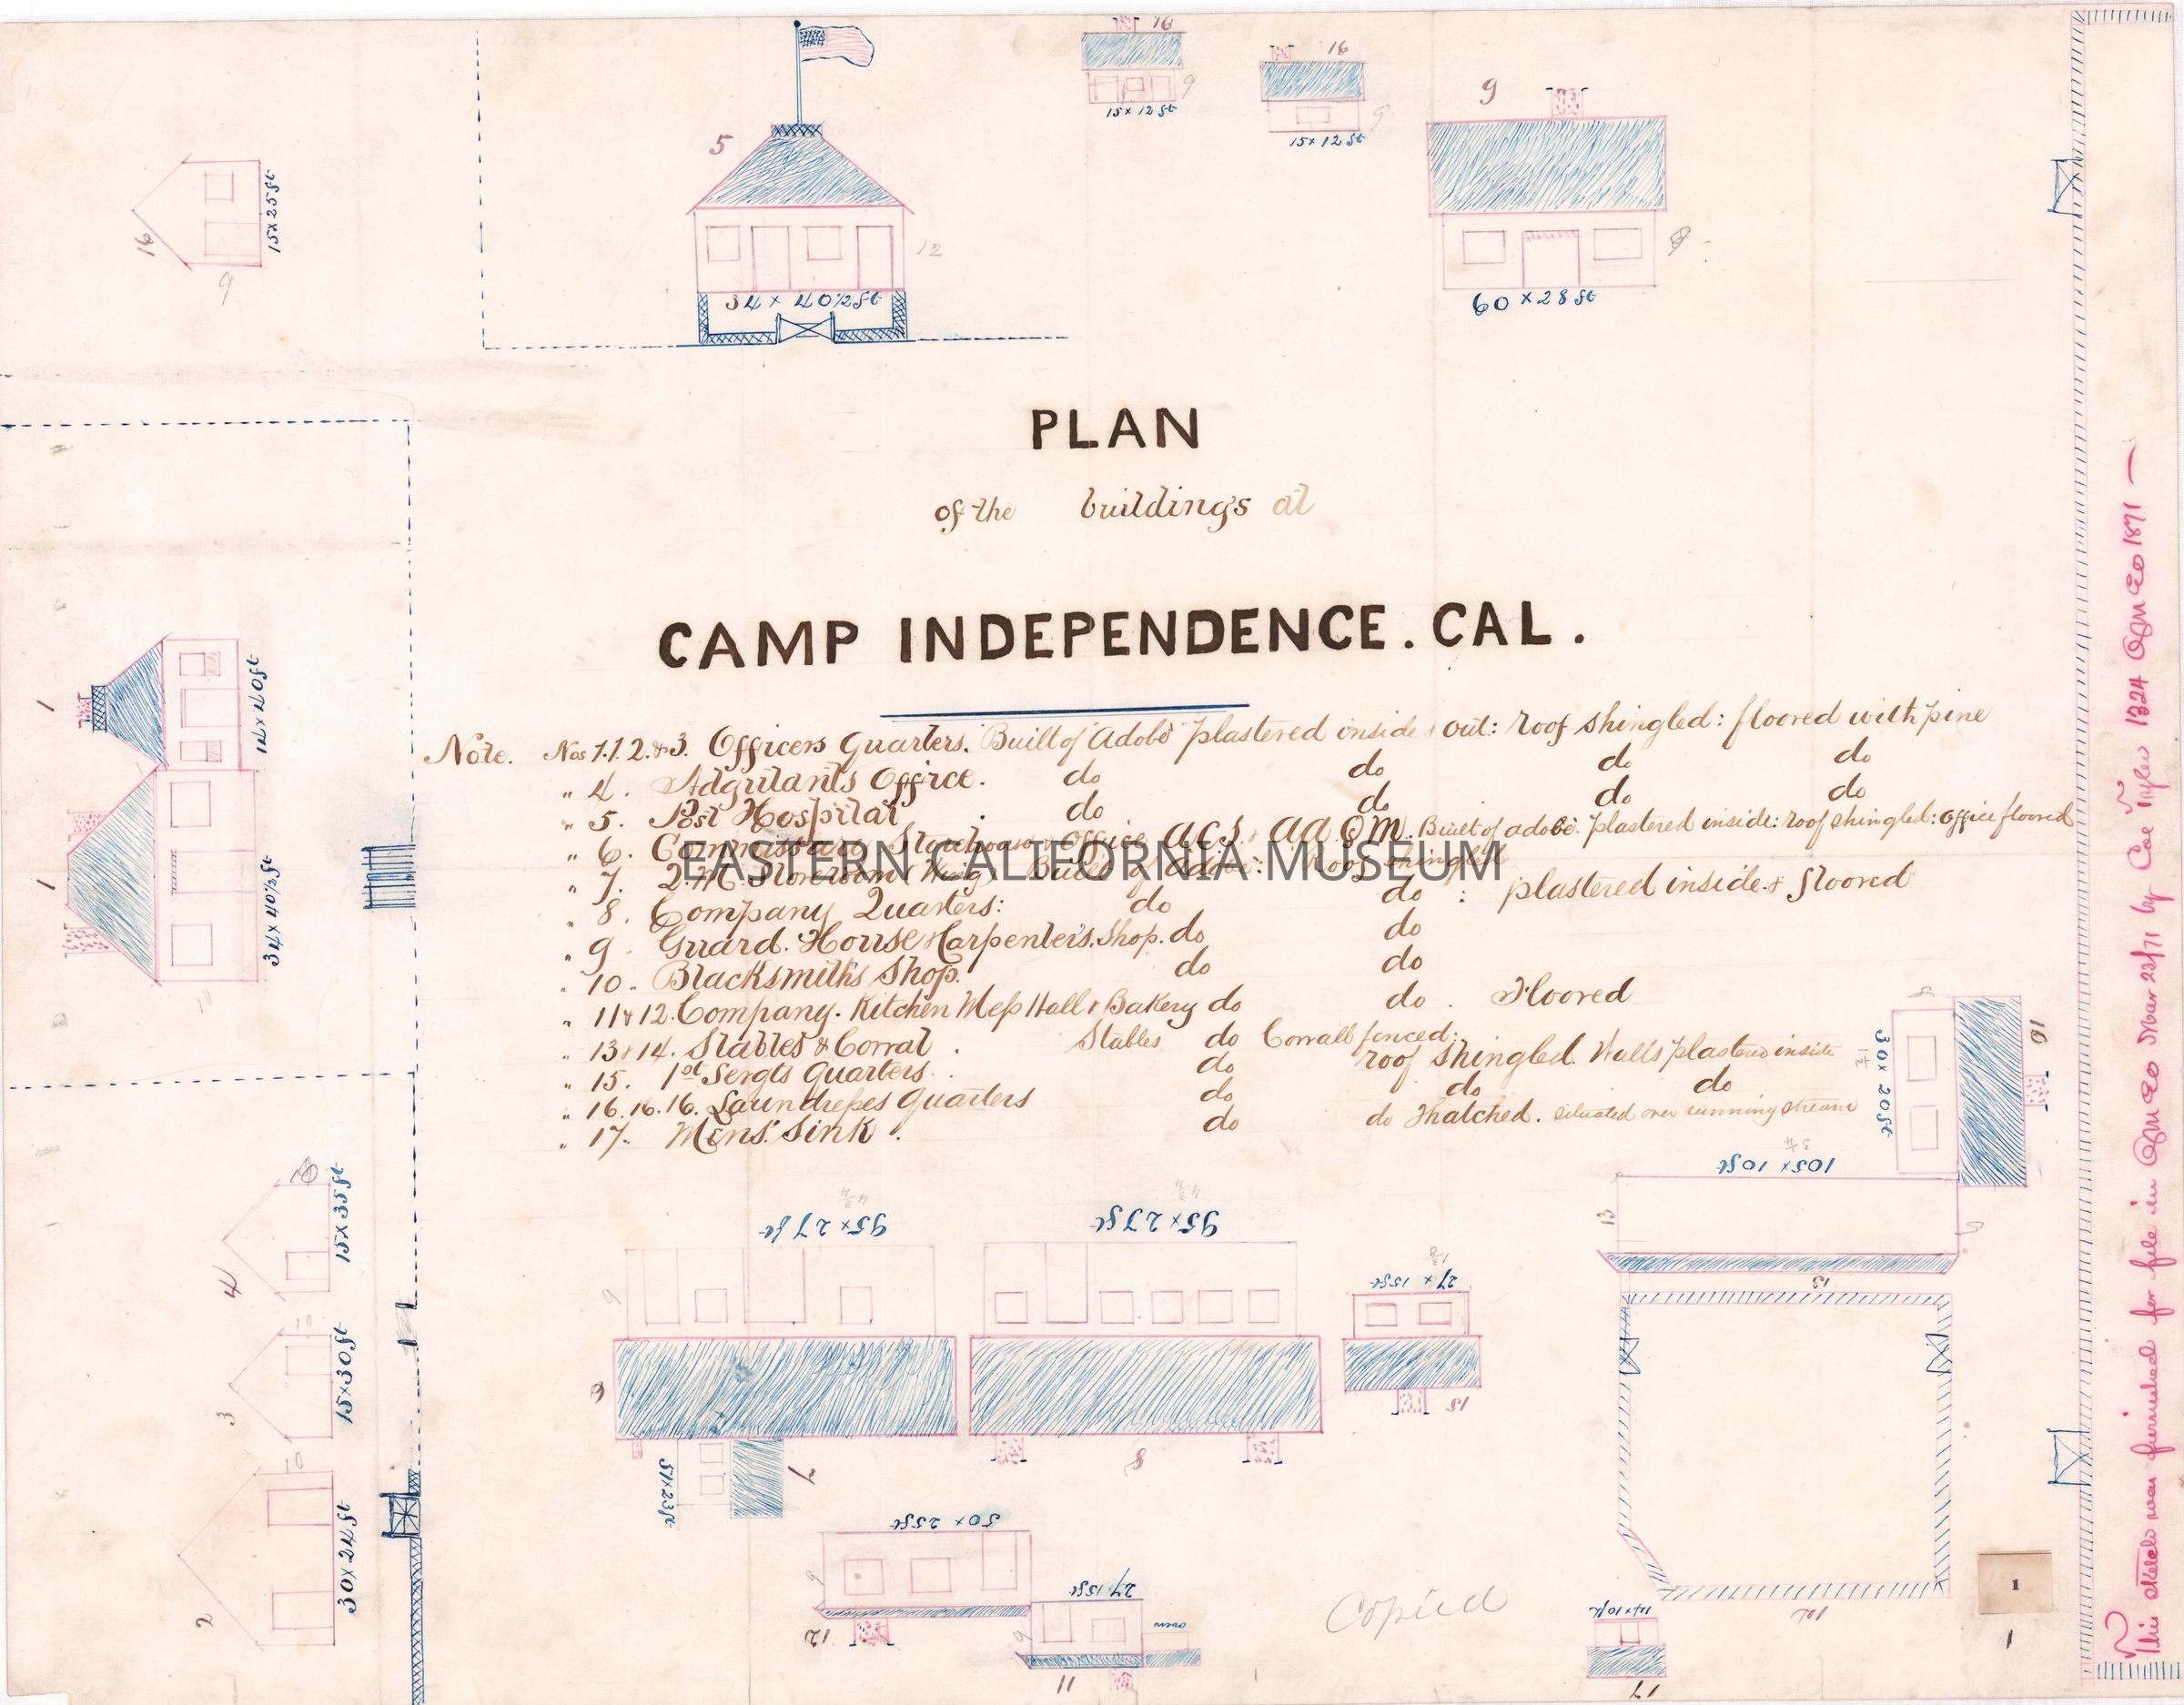 16
15 x 12 ft
9
16
15 x 12 ft
9
9
60 x 28 ft
5
12
34 x 40½ ft
16
9
15 x 25 ft
PLAN
of the buildings at
CAMP INDEPENDENCE. CAL.
Note. Nos 1.1.2.&3. Officers Quarters. Built of Adobe plastered inside & out: roof shingled: floored with pine
" 4. Adgutants Office. do do do do
" 5. Post Hospital. do do do do
" 6. Commissary Storehouse & office ACS & AAQM. Built of adobe: plastered inside: roof shingled: office floored
" 7. Q.M. Storeroom (Wing) Built of Adobe: Roof shingled
" 8. Company Quarters: do do : plastered inside & floored
" 9. Guard. House & Carpenters. Shop. do do
" 10. Blacksmith's Shop. do do
" 11 & 12. Company. Kitchen Mess Hall & Bakery do do. Floored
" 13 & 14. Stables & Corral. Stables do Corrall fenced:
" 15. 1st Sergts Quarters. do roof shingled. Walls plastered inside
" 16.16.16. Laundresses Quarters do do do
" 17. Mens' Sink. do do Thatched. situated over running stream
EASTERN CALIFORNIA MUSEUM
1
14 x 40 ft
1
34 x 40½ ft
4
15 x 35 ft
3
15 x 30 ft
2
30 x 24 ft
95 x 27 ft
9
95 x 27 ft
8
27 x 15 ft
15
7
51 x 23 ft
50 x 25 ft
9
12
27 15 ft
9
oven
11
10
30 x 20 ft
105 x 10 ft
13
13
14
14 x 10 ft
17
Copied
1
1
This sketch was furnished for file in QMGO Mar 23/71 by Cae Tyler 1324 QMGO 1871 —